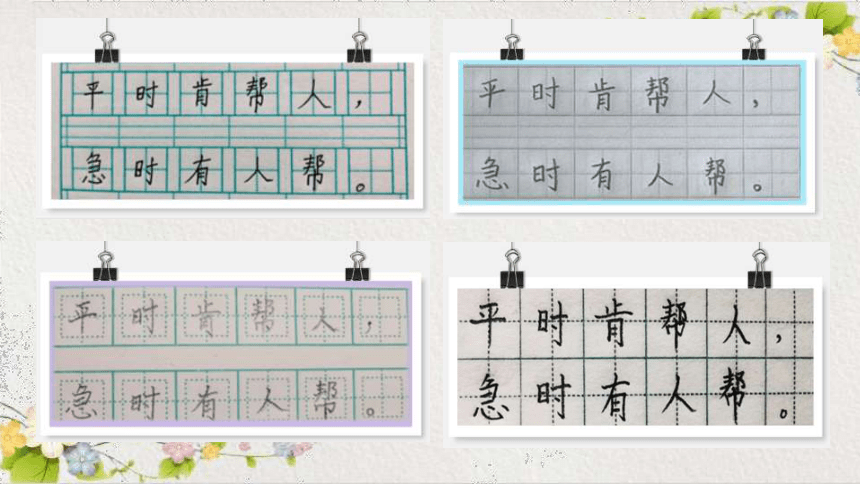 平时肯帮人，
急时有人帮。
平时肯帮人，
急时有人帮。
平时肯帮人，
急时有人帮。
平时肯帮人，
急时有人帮。